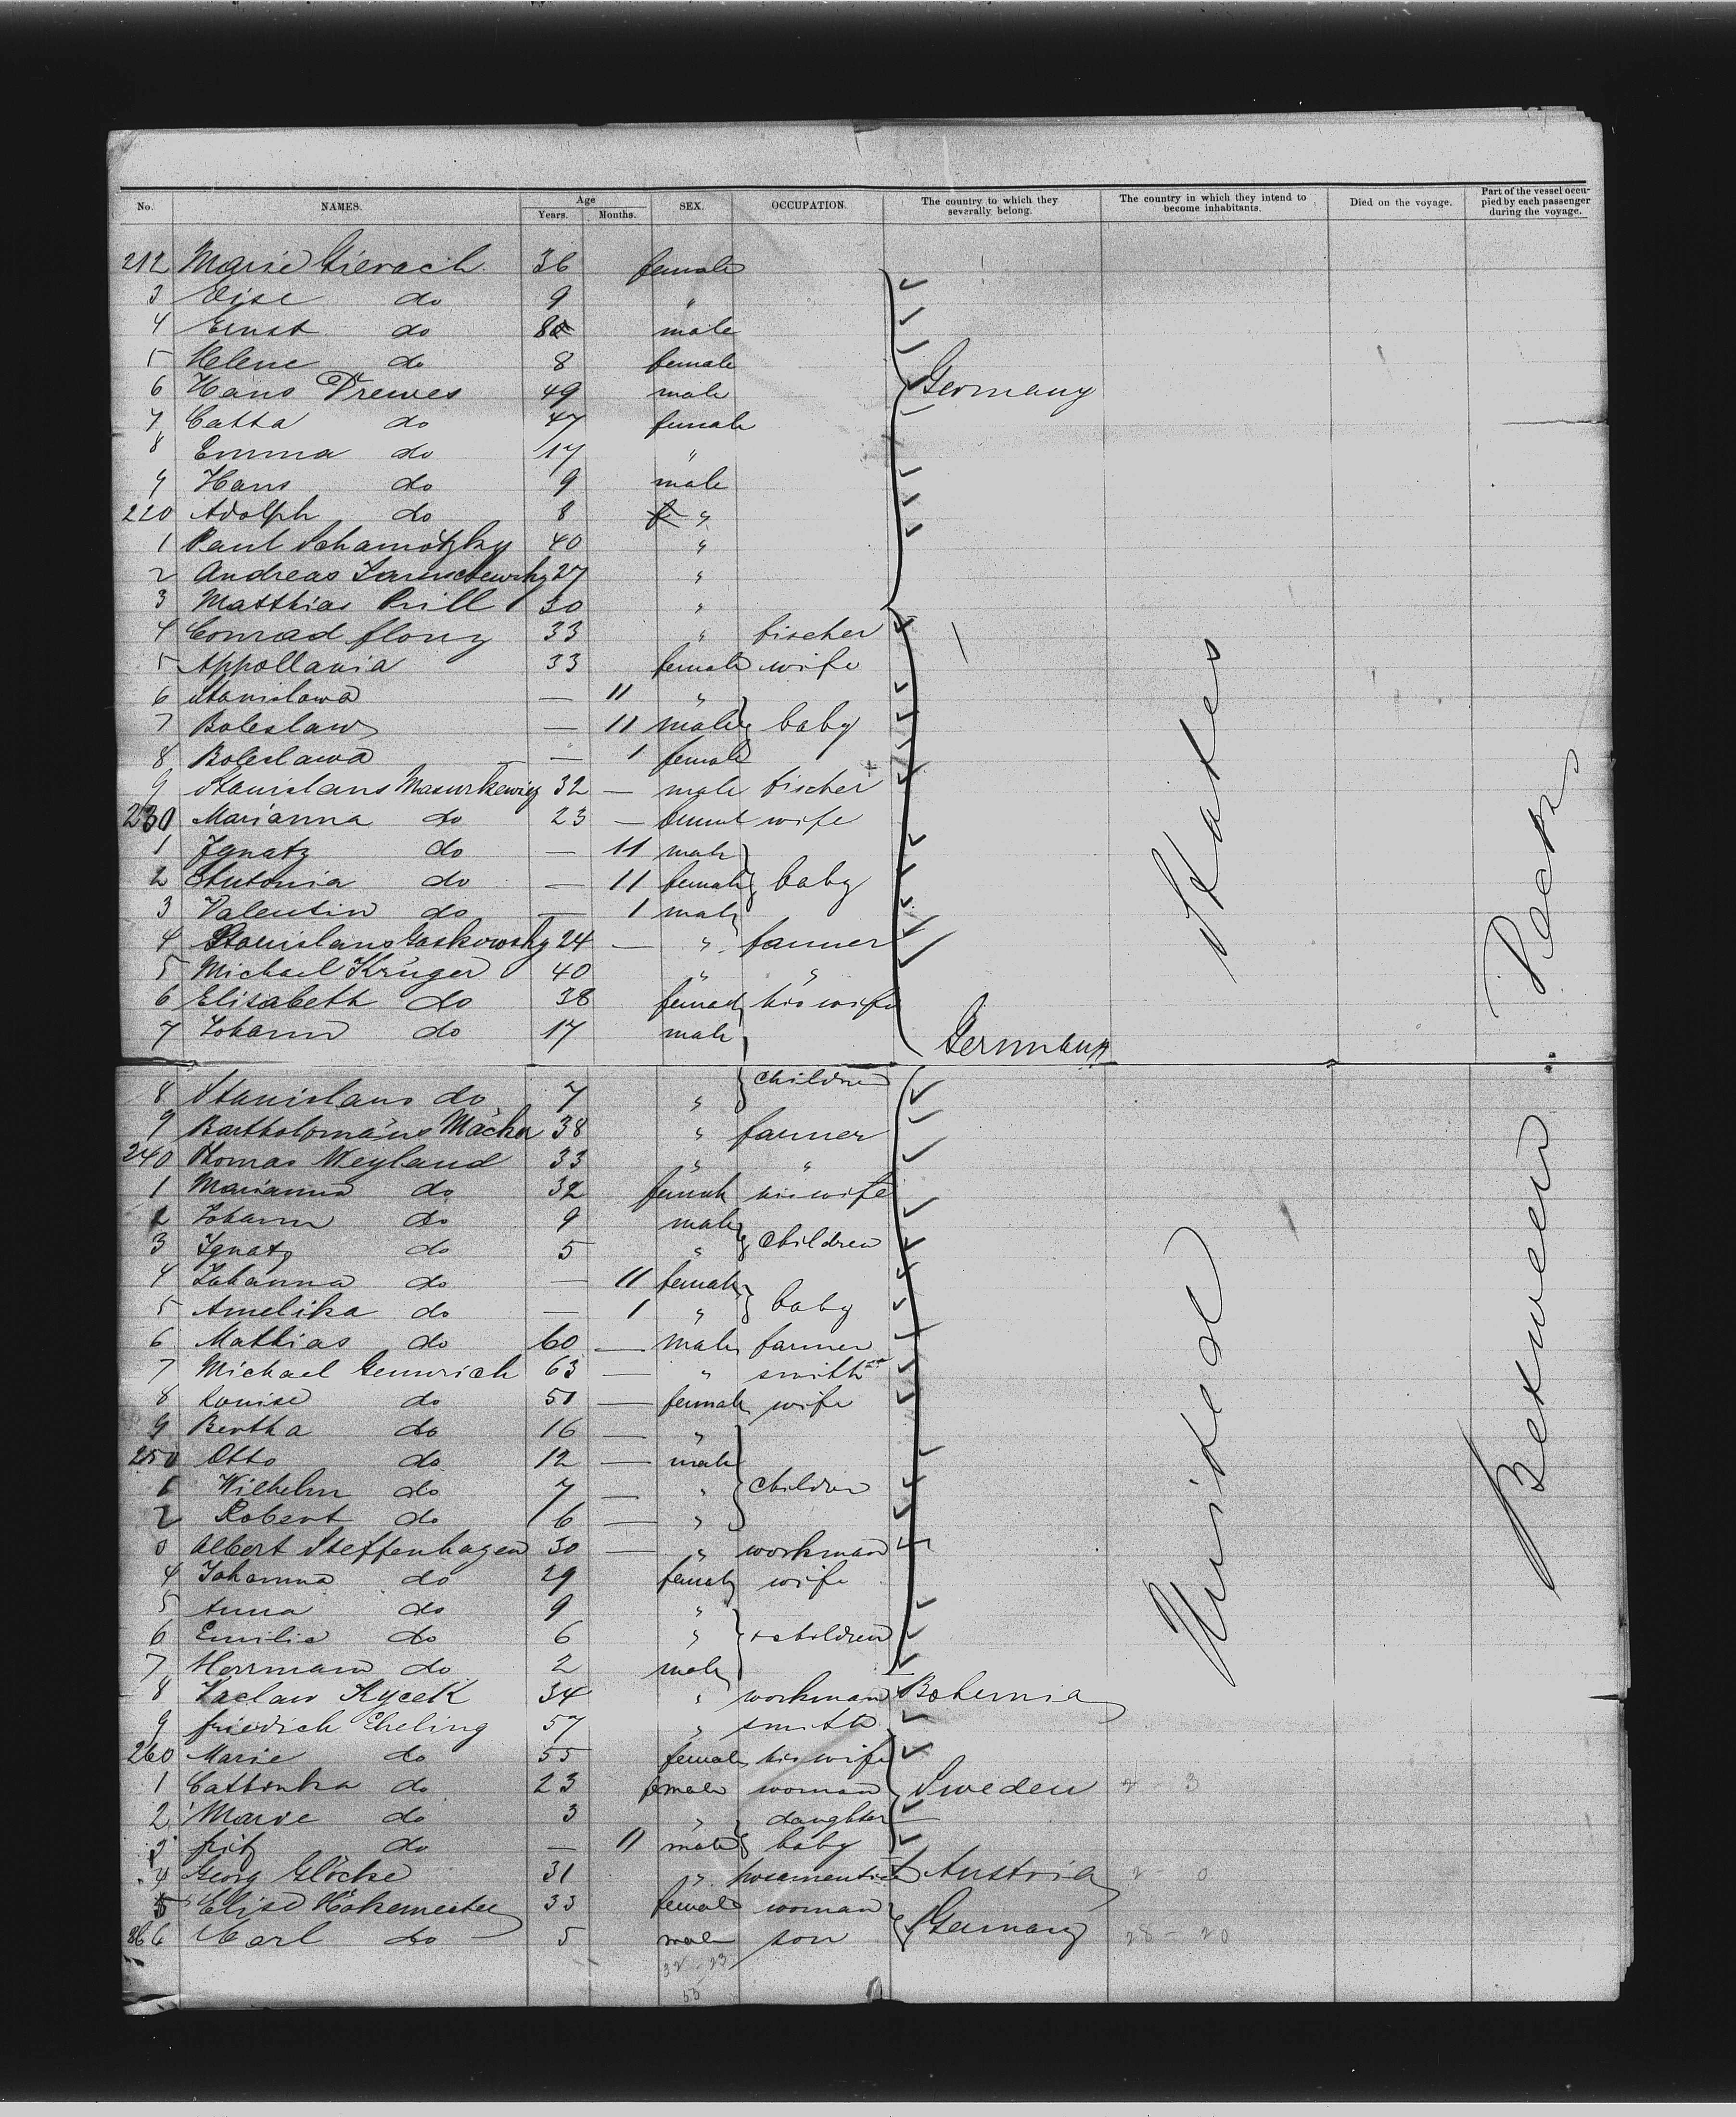 No. NAMES. Age Years. Months. SEX. OCCUPATION. The country to which they severally belong. The country in which they intend to become inhabitants. Died on the voyage. Part of the vessel occupied by each passenger during the voyage.
212 Marie Gierach 36 female
3 Elise do 9 "
4 Ernst do 8 male
5 Helene do 8 female
6 Hans Drewes 49 male Germany
7 Catha do 47 female
8 Emma do 17 "
9 Hans do 9 male
220 Adolph do 8 "
1 Paul Schamotzky 40 "
2 Andreas 27 "
3 Matthias Prill 30 "
4 Conrad flony 33 " fischer
5 Appollania 33 female wife
6 Stanislawa — 11 "
7 Boleslaw — 11 male baby
8 Boleslawa — 1 female
9 Stanislaus Masurkewicz 32 — male fischer
230 Marianna do 23 — female wife
1 Ignatz do — 11 male
2 Antonia do — 11 female baby
3 Valentin do — 1 male
4 Stanislaus Goskowsky 24 — " farmer
5 Michael Krüger 40 " "
6 Elisabeth do 38 female his wife
7 Johann do 17 male Germany
8 Stanislaus do 7 " children
9 Bartholomäus Mäcker 38 " farmer
240 Thomas Weyland 33 " "
1 Marianna do 32 female his wife
2 Johann do 9 male
3 Ignatz do 5 " children
4 Johanna do — 11 female
5 Amelika do — 1 " baby
6 Mathias do 60 — male farmer
7 Michael Gemrich 63 — " smith
8 Louise do 51 — female wife
9 Bertha do 16 — "
250 Otto do 12 — male
1 Wilhelm do 7 — " children
2 Robert do 6 — "
3 Albert Steffenhagen 30 — " workman
4 Johanna do 29 female wife
5 Anna do 9 "
6 Emilie do 6 " children
7 Herrmann do 2 male
8 Vaclav Kycek 34 " workman Bohemia
9 friedrich Ebeling 57 " smith
260 Marie do 55 female his wife
1 Cathinka do 23 female woman Sweden
2 Marie do 3 " daughter
3 fritz do — 11 male baby
4 Georg Glöcke 31 " Austria
5 Elise Hökemeeter 33 female woman
266 Carl do 5 male son Germany 28 – 20
32 – 23
55
United States
Between Deck